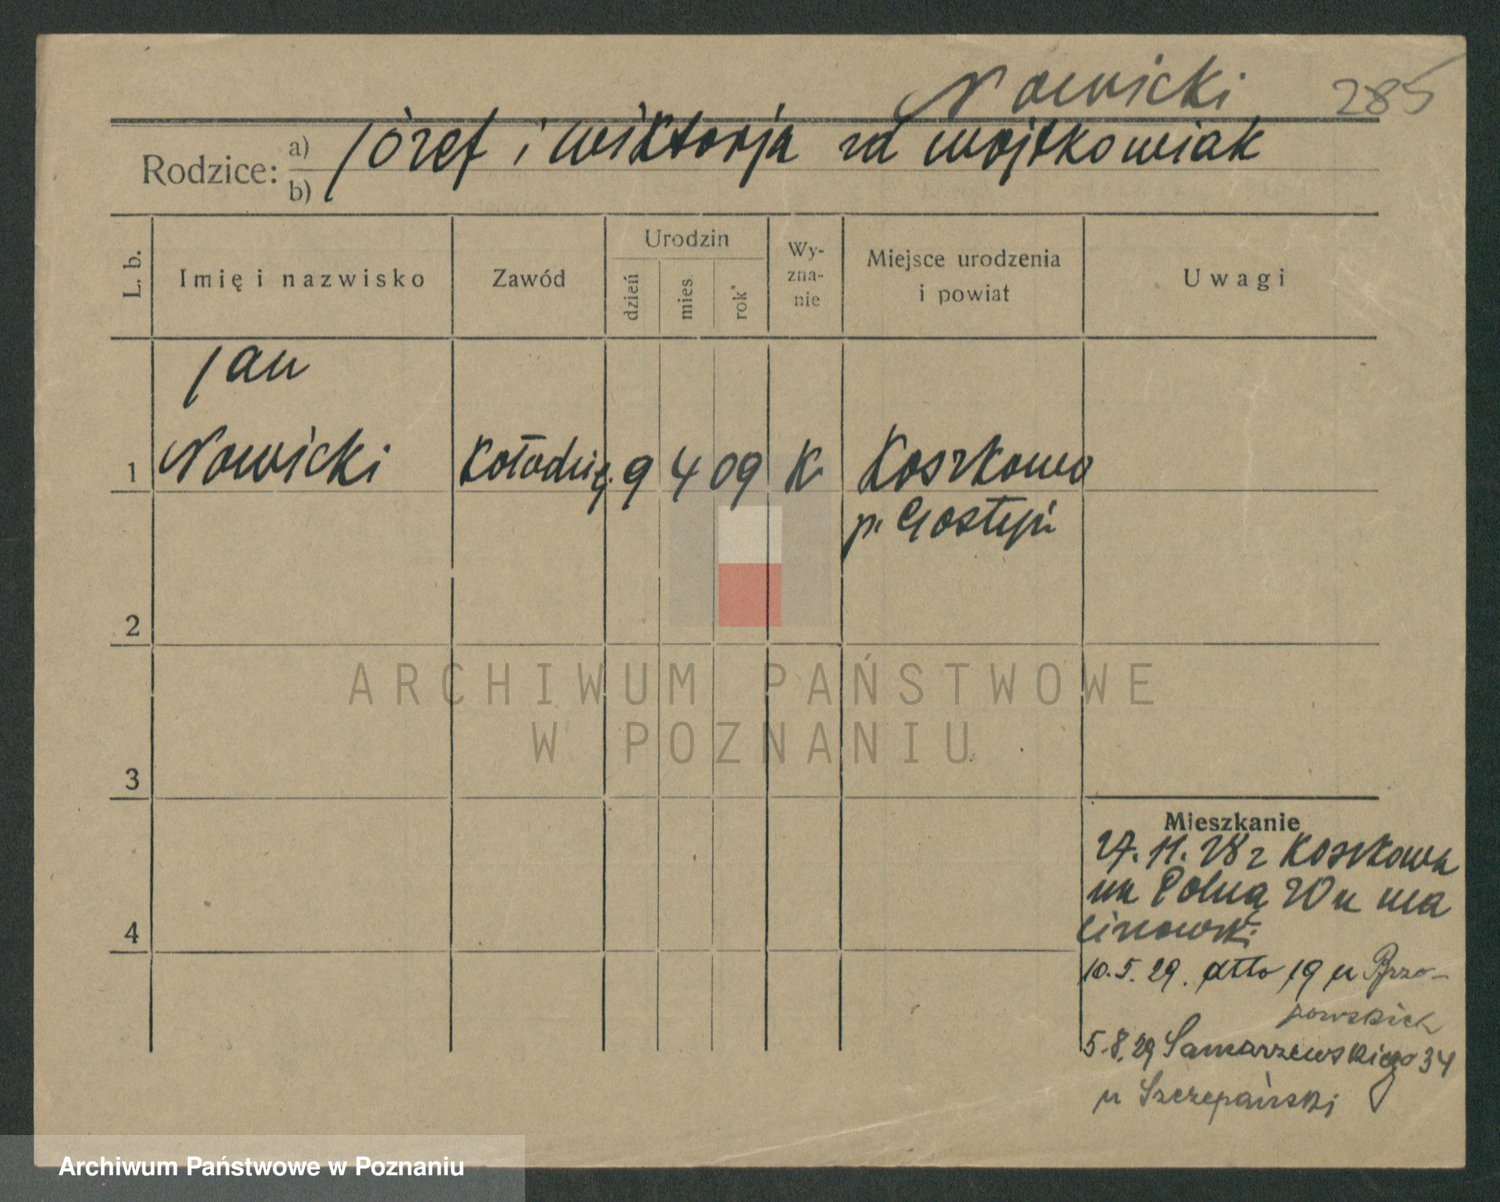 Nowicki 285
Rodzice: a) Józef i Wiktorja zd Wojtkowiak
b)
L. b. Imię i nazwisko Zawód Urodzin dzień mies. rok Wy-zna-nie Miejsce urodzenia i powiat Uwagi
Jan
1 Nowicki Kołodziej. 9 4 09 K Koszkowo
p. Gostyń
2
ARCHIWUM PAŃSTWOWE
W POZNANIU
3
Mieszkanie
27.11.28 z Koszkowa
na Polną 20 u Ma
4 linowski
10.5.29. dtto 19 u Brzo-
zowskich
5.8.29 Samarzewskiego 34
u Szczepański
Archiwum Państwowe w Poznaniu